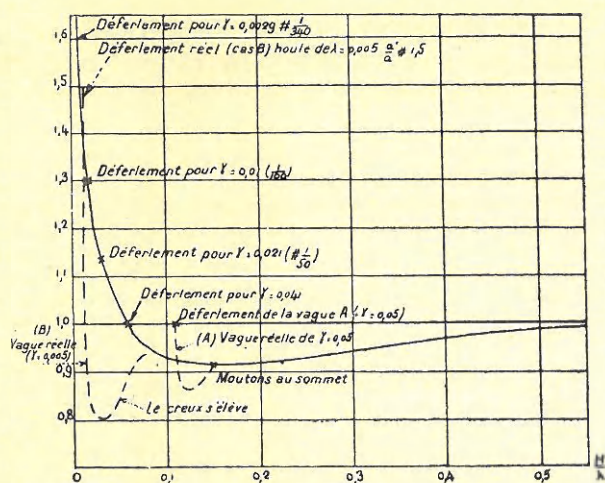 1,6
Déferlement pour γ = 0,0029 # 1/340
Déferlement réel (cas B) houle de λ = 0,005 a'/a # 1,5
1,5
1,4
1,3
Déferlement pour γ = 0,01 (1/100)
1,2
Déferlement pour γ = 0,021 (# 1/50)
1,1
Déferlement pour γ = 0,04
1,0
Déferlement de la vague A (γ = 0,05)
(B)
Vague réelle
(γ = 0,005)
(A) Vague réelle de γ = 0,05
0,9
Moutons au sommet
Le creux s'élève
0,8
0
0,1
0,2
0,3
0,4
0,5
H/λ